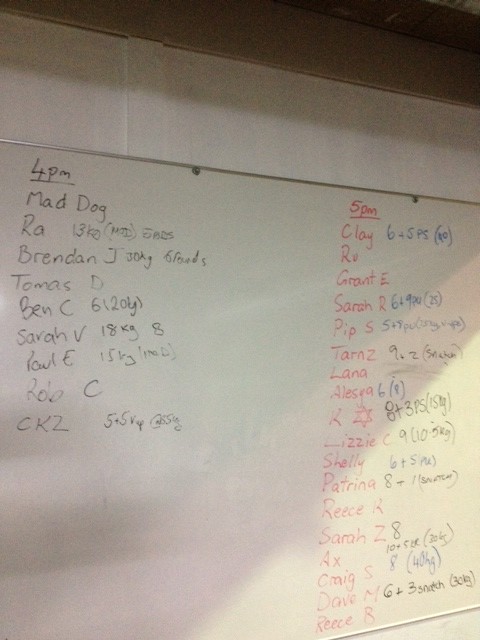 4pm
Mad Dog
Ra 13kg (MOD)
Brendan J 30kg
Tomas D
Ben C 6 (20kg)
Sarah V 18kg 8
Paul E 15kg
Rob C
CKZ 5+5
5pm
Clay 6+5PS (40)
Ro
Grant E
Sarah R 6+9pu (25)
Pip S
Tarnz (Snatch)
Lana
Alesya 6 (8)
K 8+3PS (15kg)
Lizzie C 9 (10.5kg)
Shelly 6+5
Patrina 8 + 1 (snatch)
Reece K
Sarah Z 8
Ax (20kg)
Craig S 8 (40kg)
Dave M 6+3 snatch (30kg)
Reece B